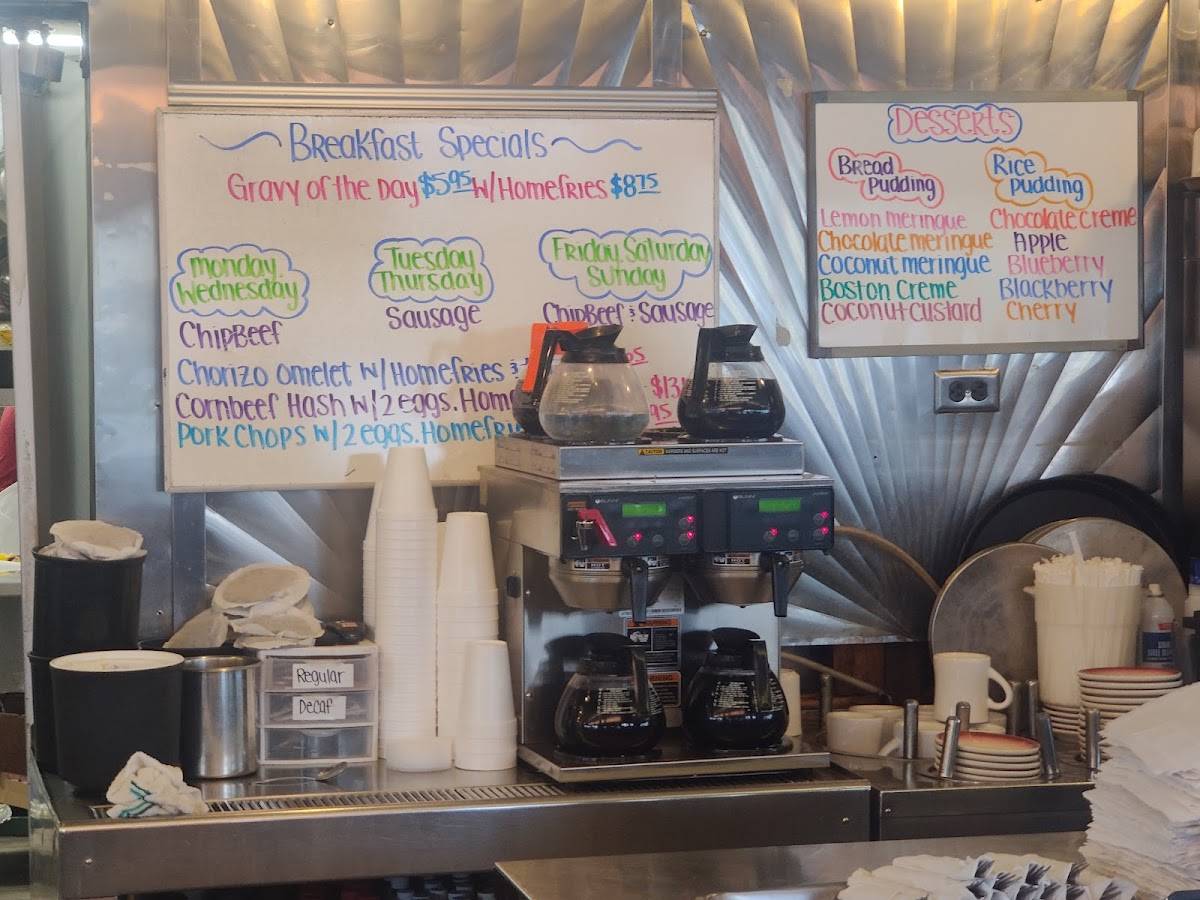 Breakfast Specials
Gravy of the Day $5.95 w/Homefries $8.75
Monday
Wednesday
ChipBeef
Tuesday
Thursday
Sausage
Friday Saturday
Sunday
ChipBeef & Sausage
Chorizo Omelet w/Homefries &
Cornbeef Hash w/2 eggs. Home
$13
95
Pork Chops w/2 eggs. Homefri
Desserts
Bread
Pudding
Rice
Pudding
Lemon meringue
Chocolate meringue
Coconut meringue
Boston Creme
Coconut Custard
Chocolate Creme
Apple
Blueberry
Blackberry
Cherry
CAUTION
BUNN
BUNN
Regular
Decaf